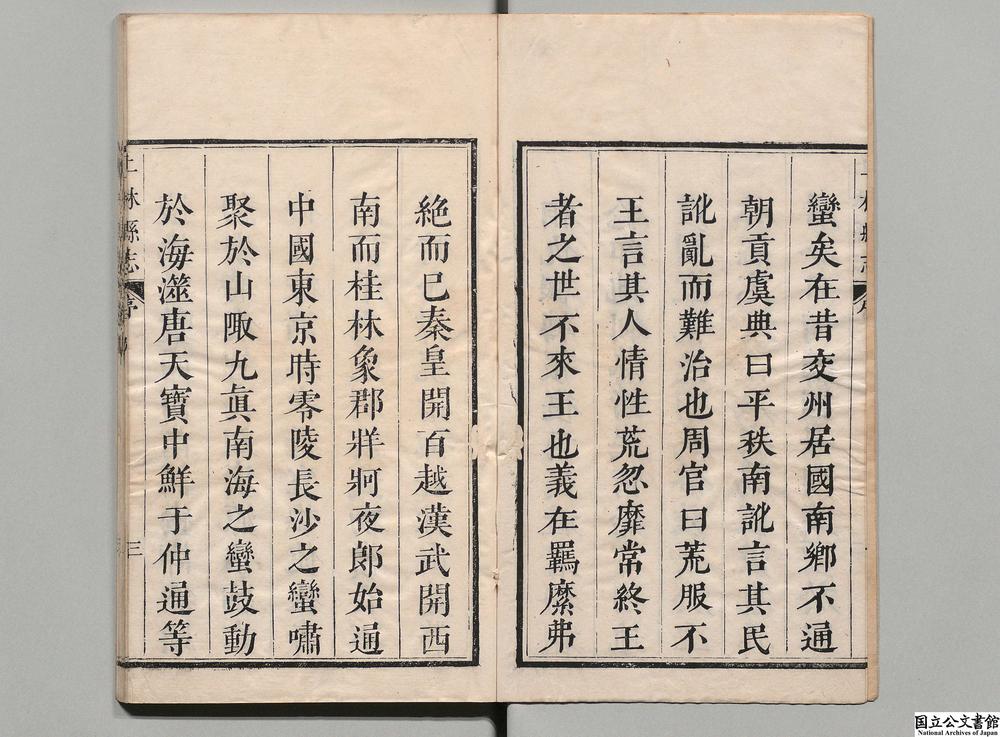 蠻矣在昔交州居國南鄉不通
朝貢虞典曰平秩南訛言其民
訛亂而難治也周官曰荒服不
王言其人情性荒忽靡常終王
者之世不來王也義在羈縻弗
絶而已秦皇開百越漢武開西
南而桂林象郡牂牁夜郎始通
中國東京時零陵長沙之蠻嘯
聚於山陬九真南海之蠻鼓動
於海澨唐天寶中鮮于仲通等
上林縣志
序
三
国立公文書館
National Archives of Japan